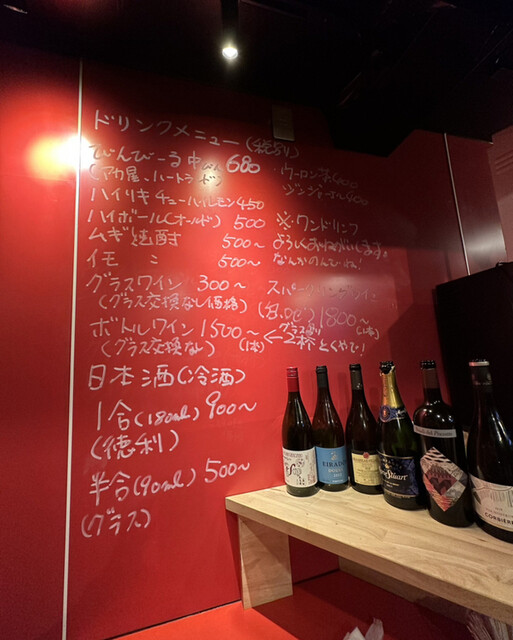 ドリンクメニュー(税別)
びんびーる 中びん 680
(アカ星、ハートランド)
ウーロン茶 400
ジンジャー 400
ハイリキチューハイレモン 450
ハイボール(オールド) 500
ムギ焼酎 500〜
イモ 〃 500〜
※ワンドリンク
よろしくおねがいします。
なんかのんでね!
グラスワイン 300〜
(グラス交換なし価格)
スパークリングワイン
(泡.のび) 1800〜
(1本)
ボトルワイン 1500〜
(グラス交換なし) (1本)
←グラスより
2杯とくやで!
日本酒(冷酒)
1合(180ml) 900〜
(徳利)
半合(90ml) 500〜
(グラス)
CORBIÈRES